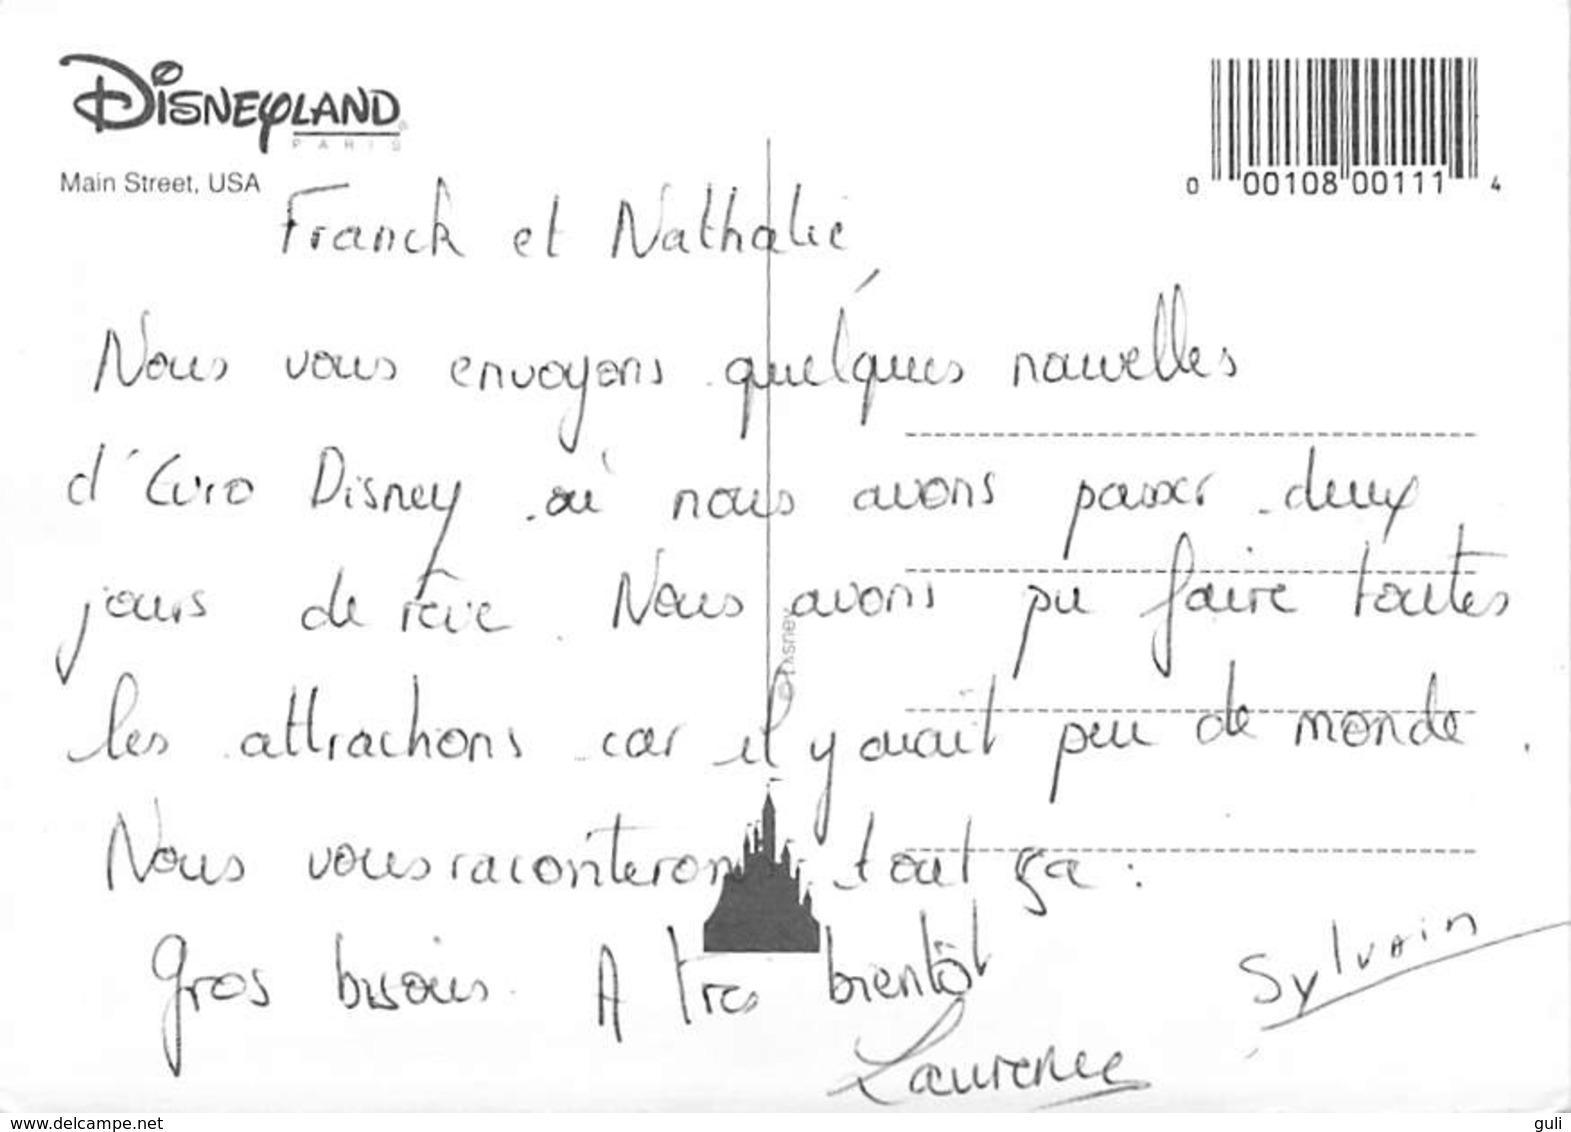 DISNEYLAND
PARIS
Main Street, USA
0 00108 00111 4
Franck et Nathalie,
Nous vous envoyons quelques nouvelles
d'Euro Disney où nous avons passer deux
jours de rêve. Nous avons pu faire toutes
les attractions car il y avait peu de monde.
Nous vous raconterons tout ça.
Gros bisous. A tres bientôt
Sylvain
Laurence
© Disney
www.delcampe.net
guli